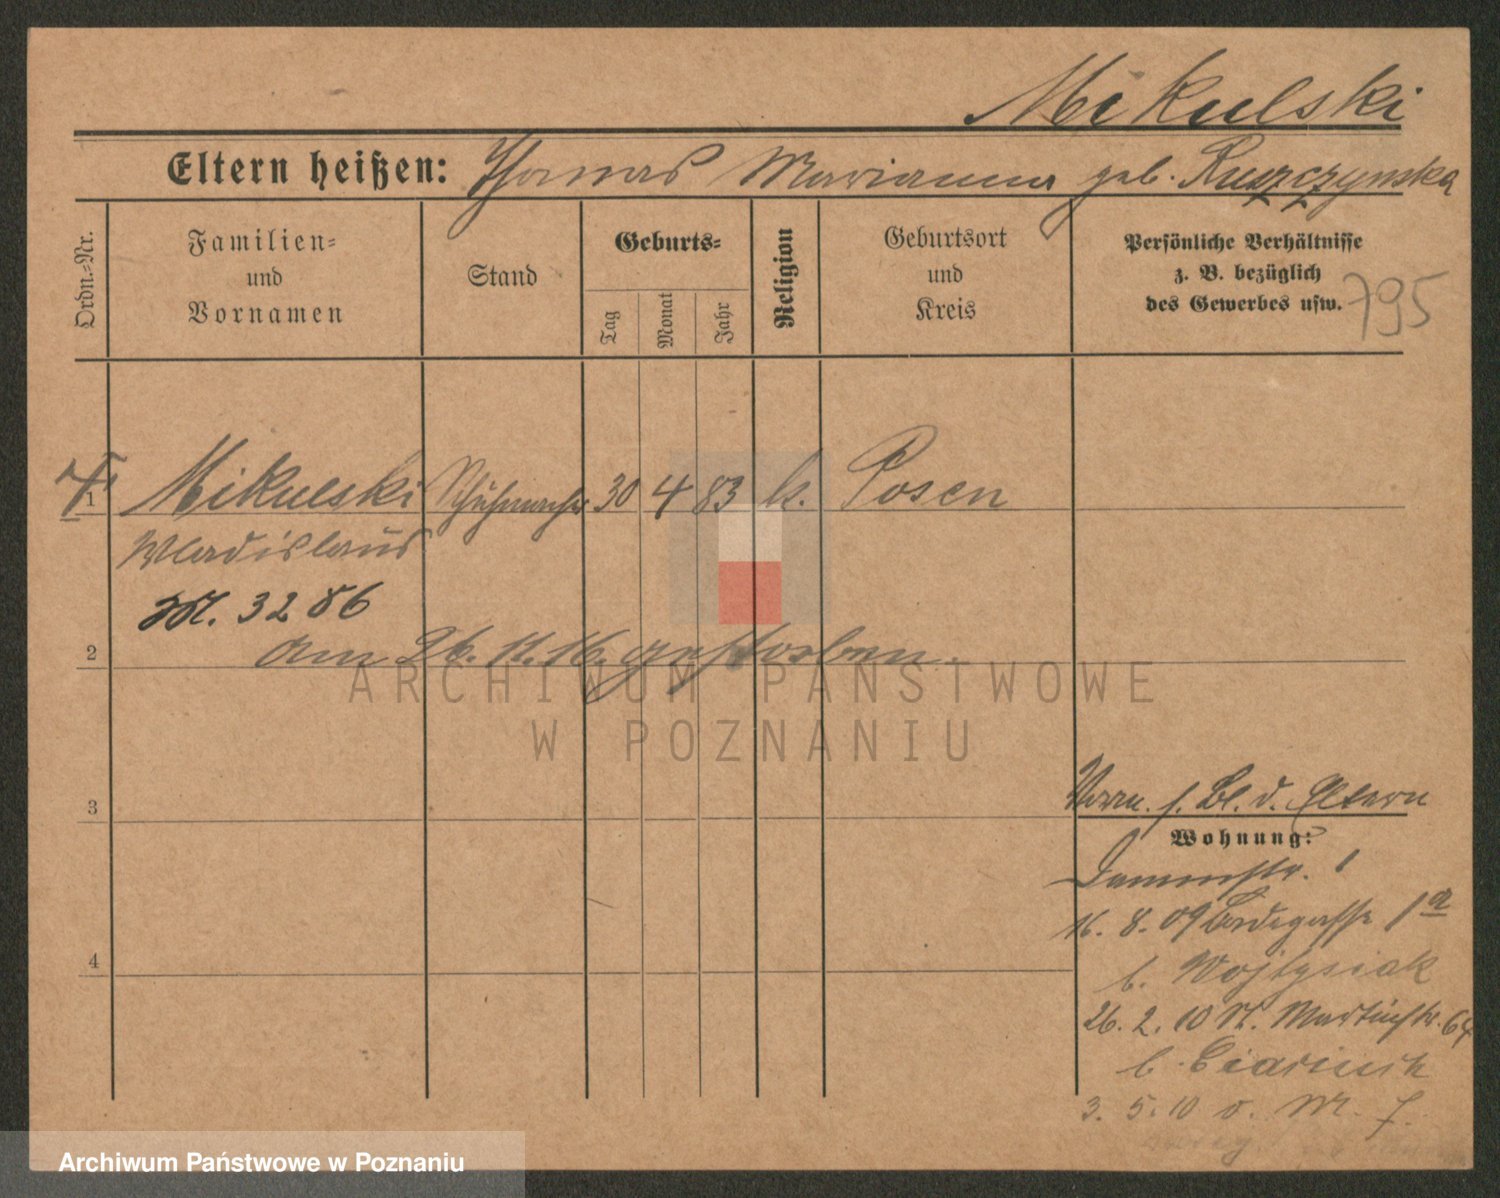 Mikulski
Eltern heißen: Thomas Marianna geb. Ruszczynska
Ordn.-Nr.
Familien-
und
Vornamen
Stand
Geburts-
Tag
Monat
Jahr
Religion
Geburtsort
und
Kreis
Persönliche Verhältnisse
z. B. bezüglich
des Gewerbes usw.
795
1 Mikulski Schuhmacher 30 4 83 k. Posen
Wladislaus
M. 3286
am 26. 11. 16. gestorben.
2
3
Vorm. s. Bl. d. Eltern
Wohnung:
Dammstr. 1
16. 8. 09 1a
4
b.
26. 2. 10 St. Martinstr. 64
b.
3. 5. 10
ARCHIWUM PAŃSTWOWE
W POZNANIU
Archiwum Państwowe w Poznaniu